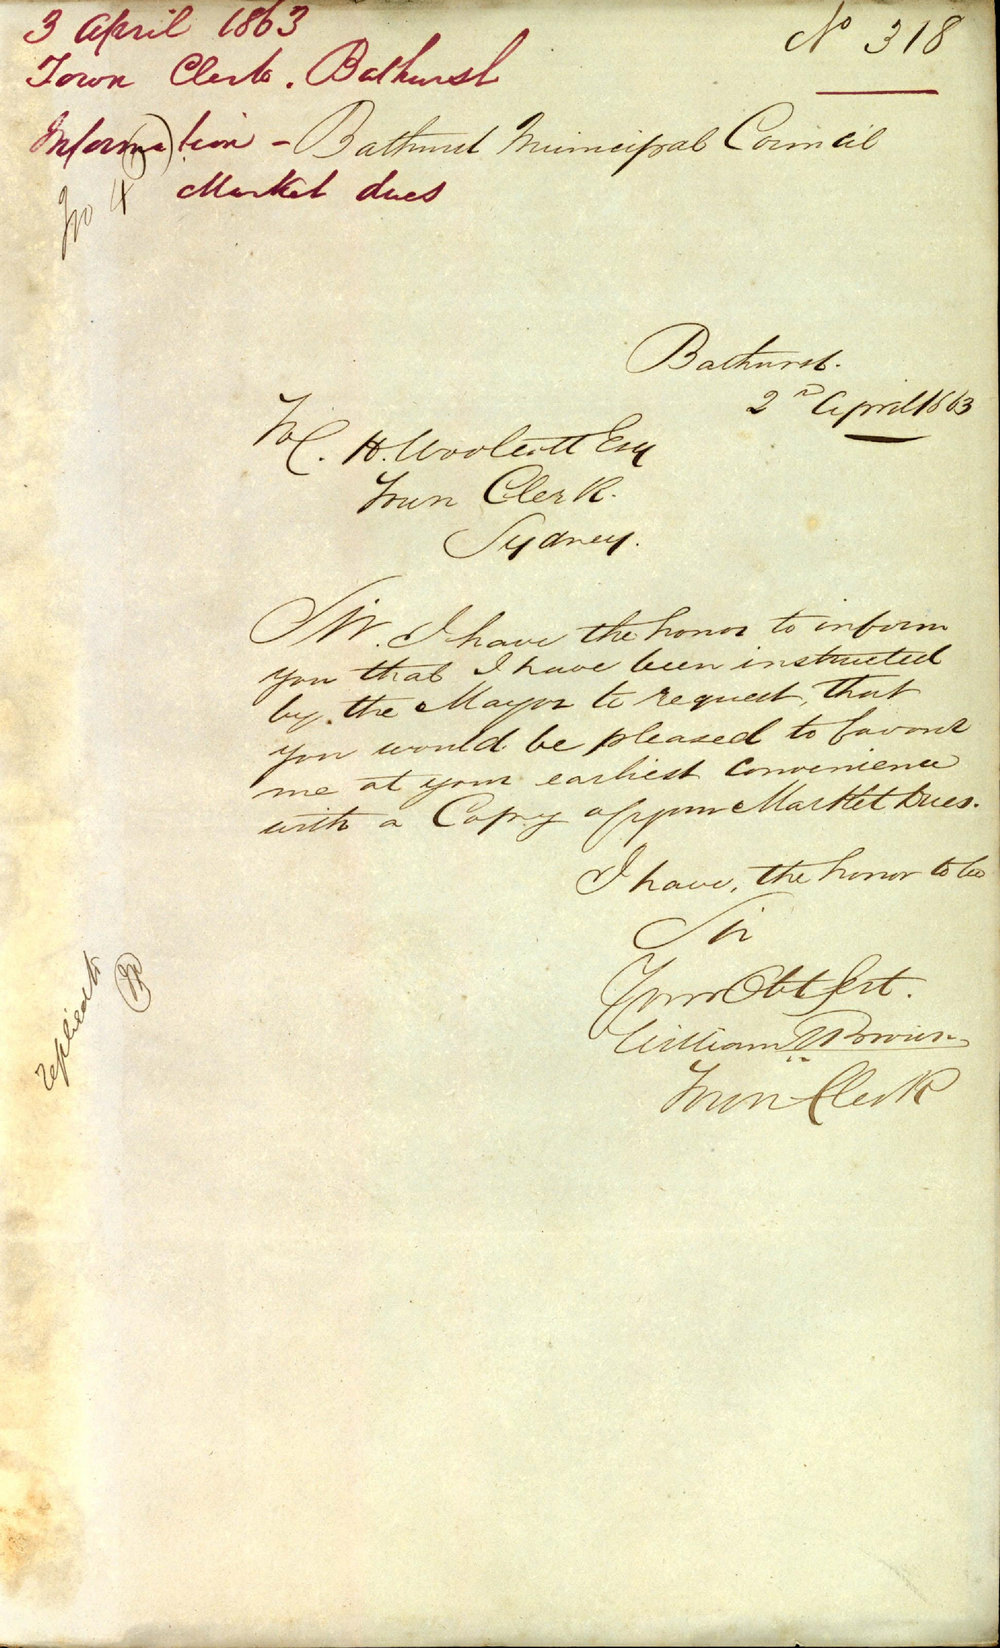 3 April 1863
No 318
Town Clerk. Bathurst
Information - Bathurst Municipal Council
Market dues
No 4
Bathurst.
2nd April 1863
To C. H. Woolcott Esq
Town Clerk.
Sydney.
Sir. I have the honor to inform
you that I have been instructed
by the Mayor to request that
you would be pleased to favour
me at your earliest convenience
with a Copy of your Market Dues.
I have, the honor to be
Sir
Your Obt Sert.
William Brown
Town Clerk
replied to